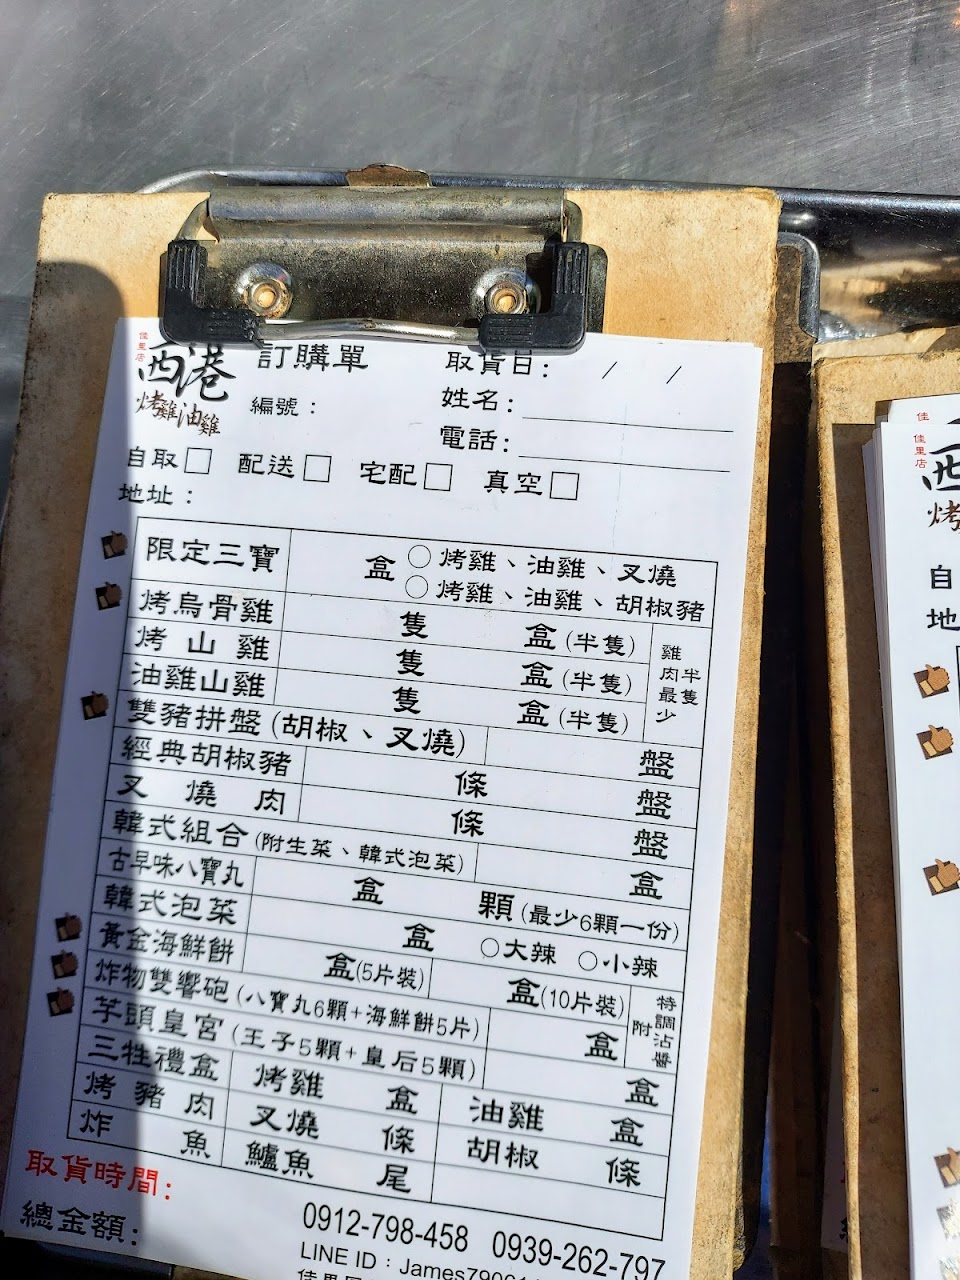 佳里店
西港 訂購單 取貨日: / /
烤雞油雞 編號: 姓名:
電話:
自取□ 配送□ 宅配□ 真空□
地址:
限定三寶 盒 ○烤雞、油雞、叉燒
○烤雞、油雞、胡椒豬
烤烏骨雞 隻 盒(半隻)
烤山雞 隻 盒(半隻)
油雞山雞 隻 盒(半隻)
雞肉最少半隻
雙豬拼盤(胡椒、叉燒) 盤
經典胡椒豬 條 盤
叉燒肉 條 盤
韓式組合(附生菜、韓式泡菜) 盒
古早味八寶丸 盒 顆(最少6顆一份)
韓式泡菜 盒 ○大辣 ○小辣
黃金海鮮餅 盒(5片裝) 盒(10片裝)
炸物雙響砲(八寶丸6顆+海鮮餅5片) 盒
附特調沾醬
芋頭皇宮(王子5顆+皇后5顆) 盒
三牲禮盒 烤雞 盒 油雞 盒
烤豬肉 叉燒 條 胡椒 條
炸魚 鱸魚 尾
取貨時間:
總金額: 0912-798-458 0939-262-797
LINE ID:James79061
佳里
佳
佳里店
西
烤
自
地